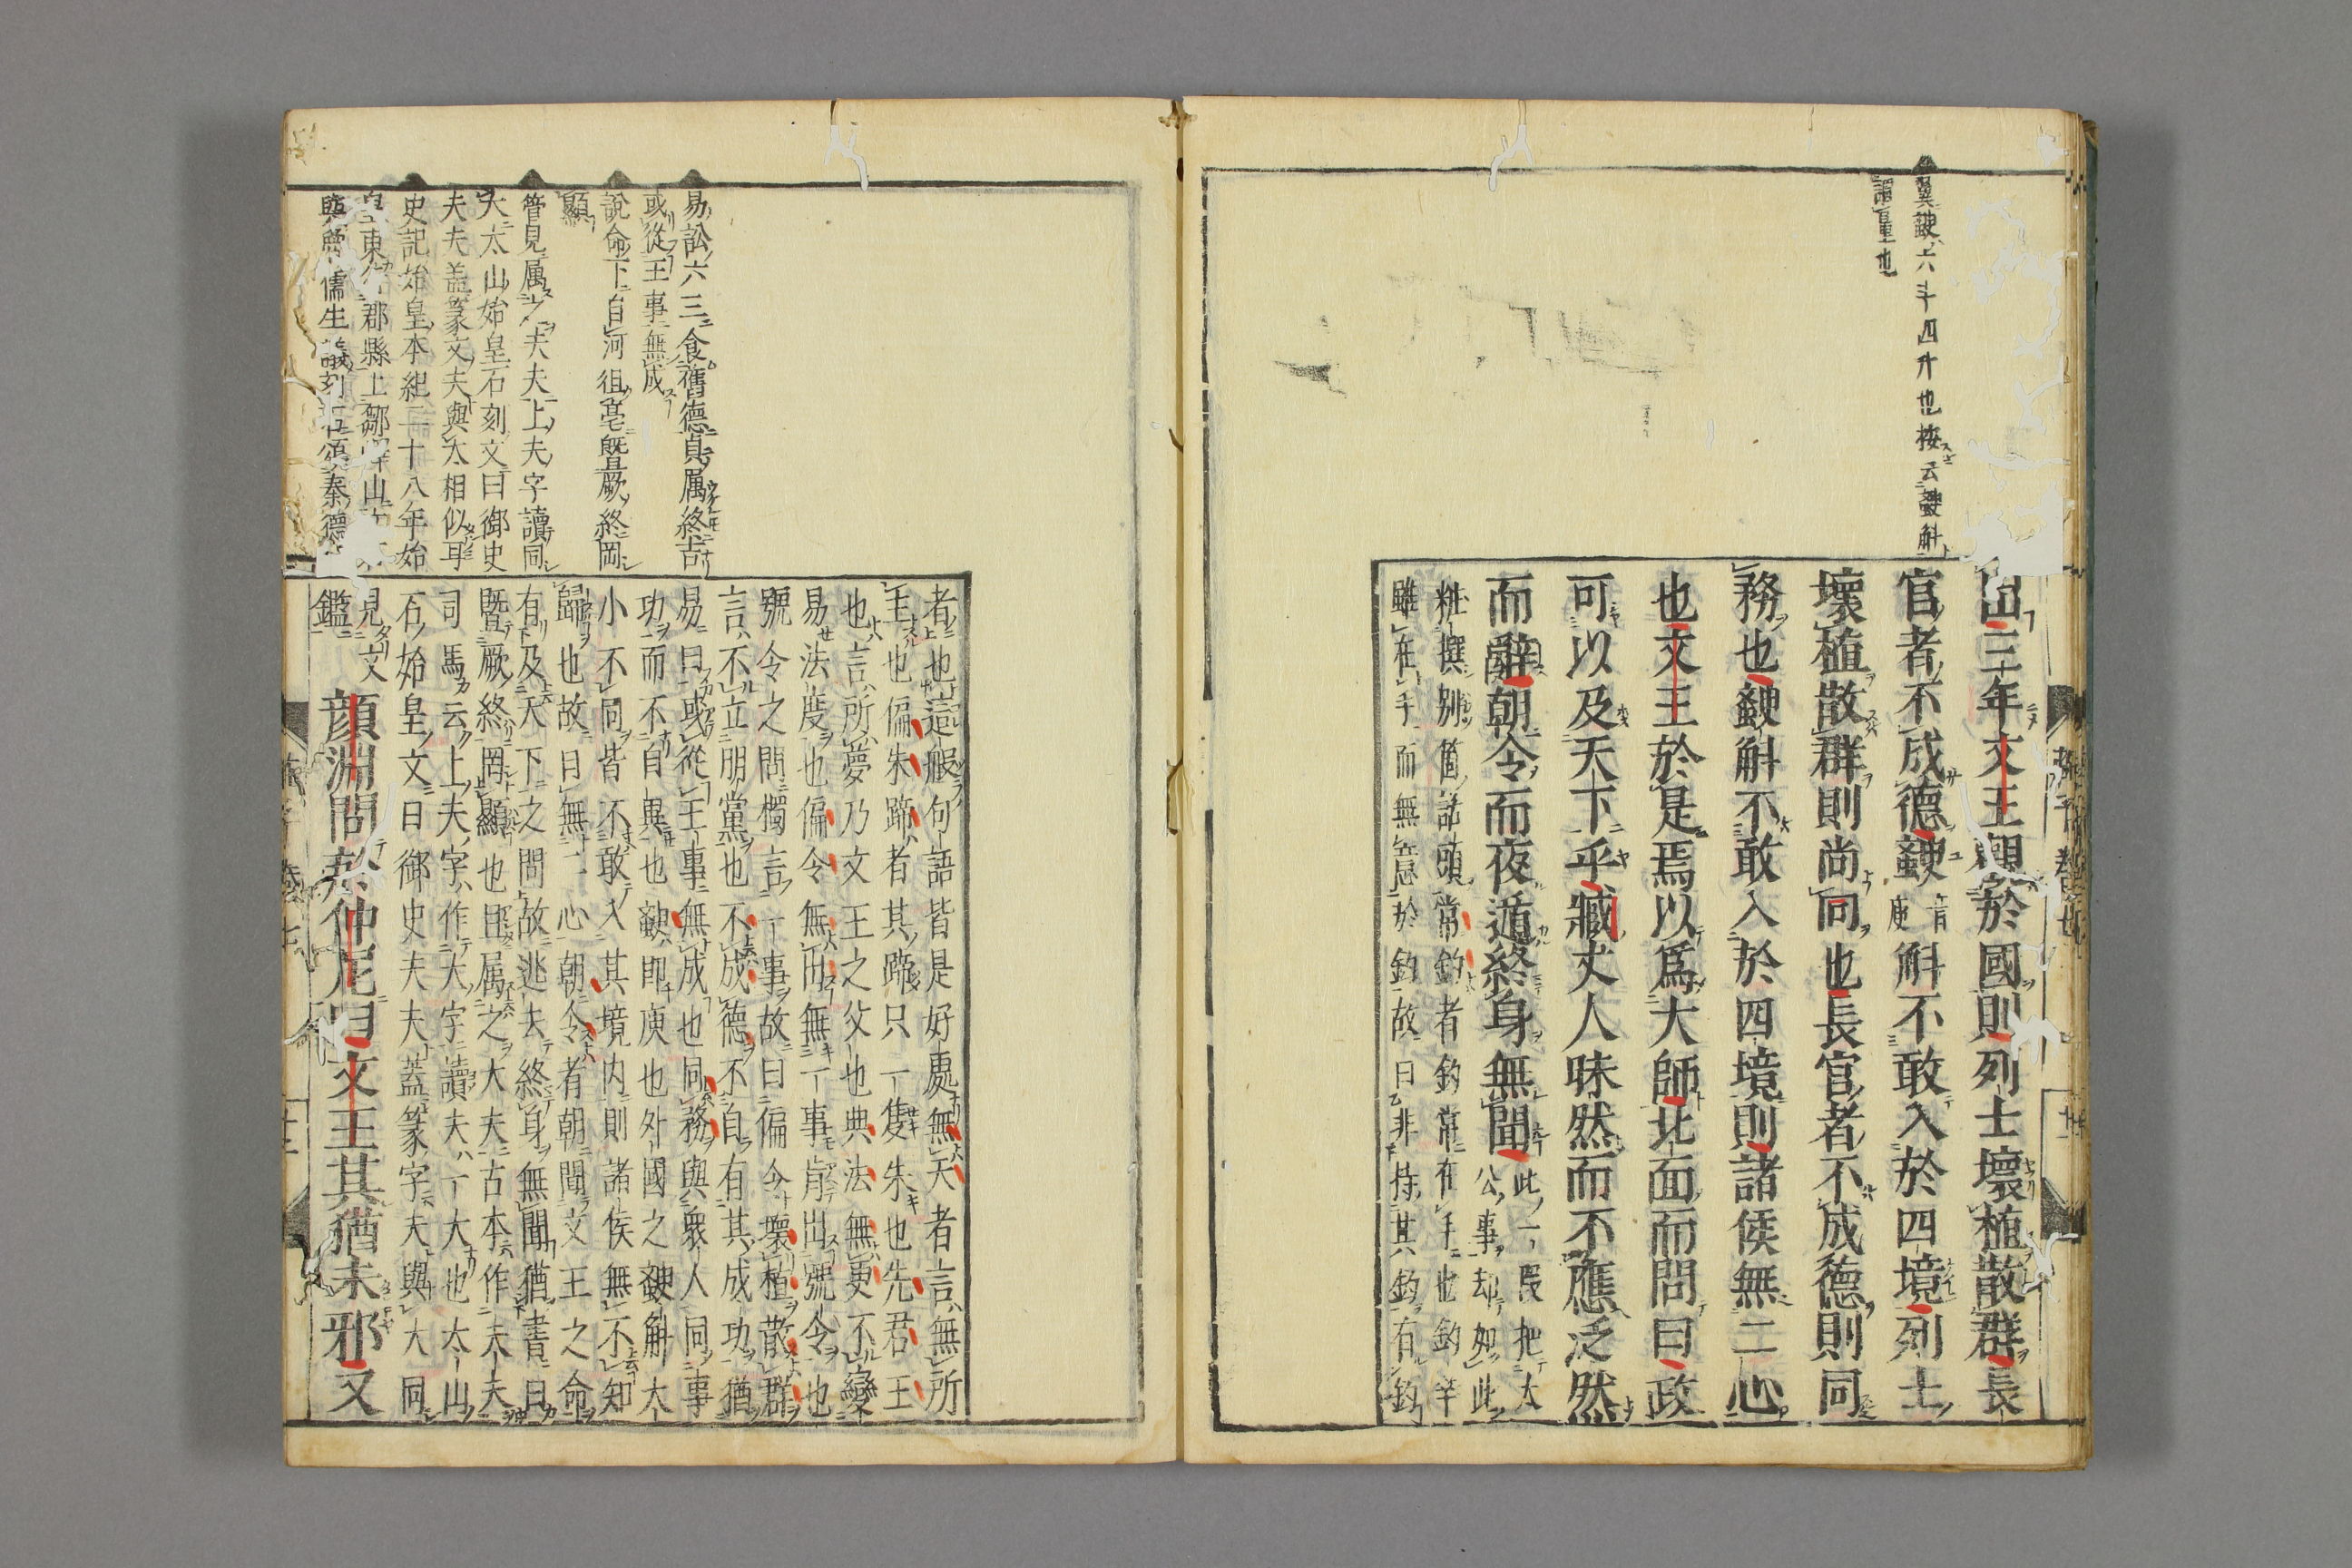 翼鈹六斗四升也按云鈹斛
謂量也
出三年文王觀於國則列士壞植散群長
官者不成德鈹斛不敢入於四境列士
壞植散群則尚同也長官者不成德則同
務也鈹斛不敢入於四境則諸侯無二心
也文王於是焉以爲大師北面而問曰政
可以及天下乎臧丈人昧然而不應泛然
而辭朝令而夜遁終身無聞此一段把大
公事却如此
粧撰別箇話頭常釣者釣常在手也釣竿
雖在手而無意於釣故曰非持其釣有釣
易訟六三食舊德貞厲終吉
或從王事無成
說命下自河徂亳曁厥終罔
顯
管見属之夫夫上夫字讀同
大太山始皇石刻文曰御史
夫夫蓋篆文夫與大相似耳
史記始皇本紀二十八年始
皇東行郡縣上鄒嶧山
與魯儒生議刻石頌秦德
者也這般句語皆是好處無天者言無所
王也偏朱蹄者其蹄只一隻朱也先君王
也言所夢乃文王之父也典法無更不變
易法度也偏令無出無一事肯出號令也
號令之間獨言一事故曰偏令壞植散群
言不立朋黨也不成德不自有其成功猶
易曰或從王事無成也同務與衆人同事
功而不自異也鈹即庾也外國之鈹斛大
小不同皆不敢入其境内則諸侯無不知
歸也故曰無二心朝令者朝聞文王之命
有及天下之問故逃去終身無聞猶書曰
曁厥終罔顯也臣属之大夫古本作夫夫
司馬云上夫字作大字讀夫一大也太山
石始皇文曰御史夫夫蓋篆字夫與大同
見文
鑑顔淵問於仲尼曰文王其猶未邪又